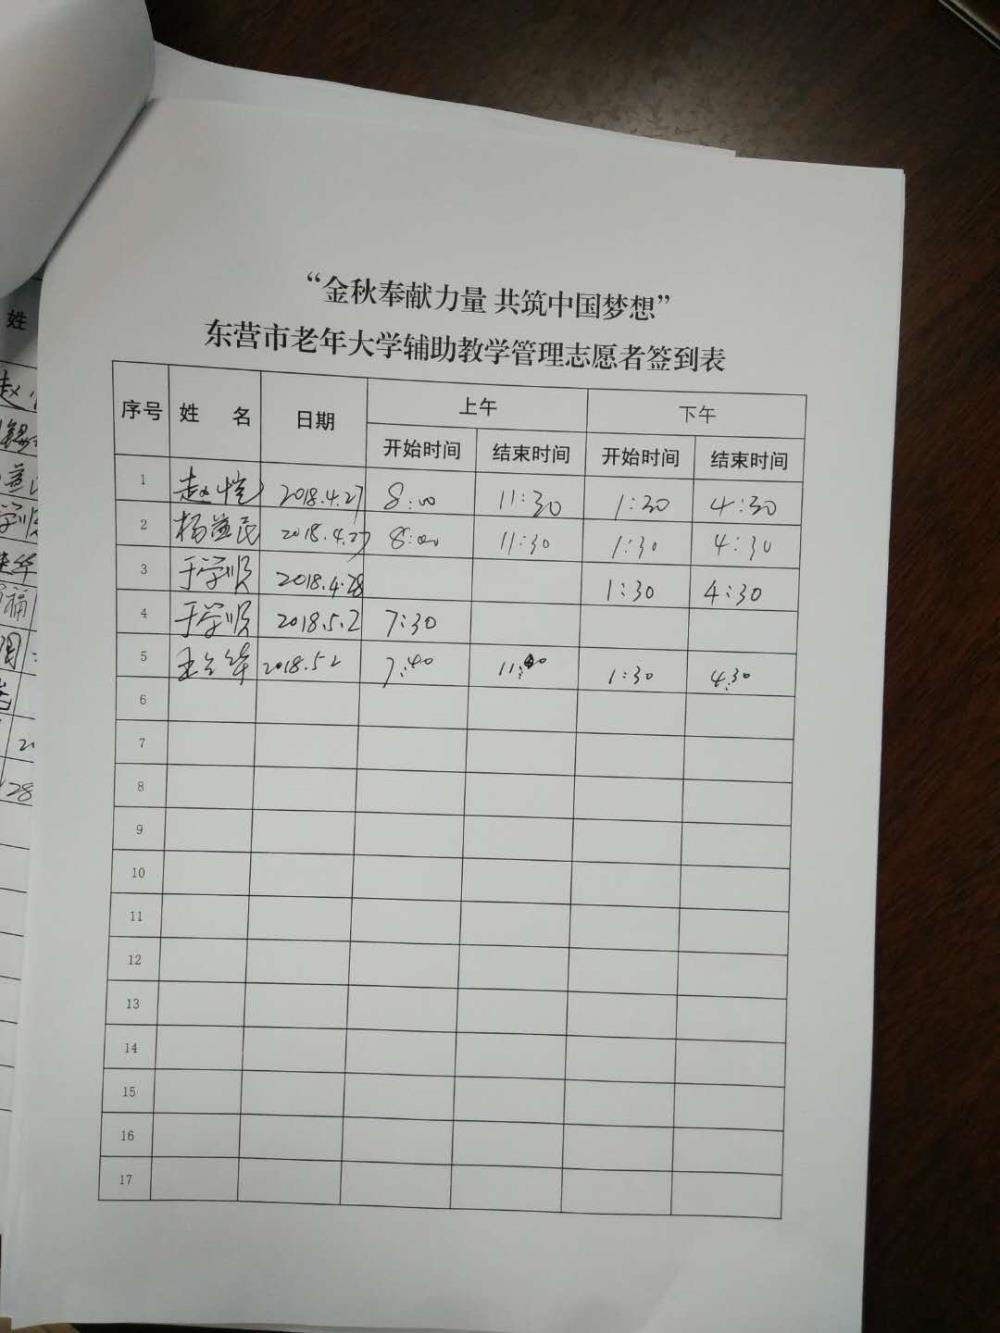 “金秋奉献力量 共筑中国梦想”
东营市老年大学辅助教学管理志愿者签到表
序号 姓 名 日期 上午 下午
开始时间 结束时间 开始时间 结束时间
1 赵恺 2018.4.27 8:00 11:30 1:30 4:30
2 杨益民 2018.4.27 8:00 11:30 1:30 4:30
3 于学顺 2018.4.28 1:30 4:30
4 于学顺 2018.5.2 7:30
5 2018.5.2 7:40 1:30 4:30
6
7
8
9
10
11
12
13
14
15
16
17
姓
赵
学顺
华
福
28